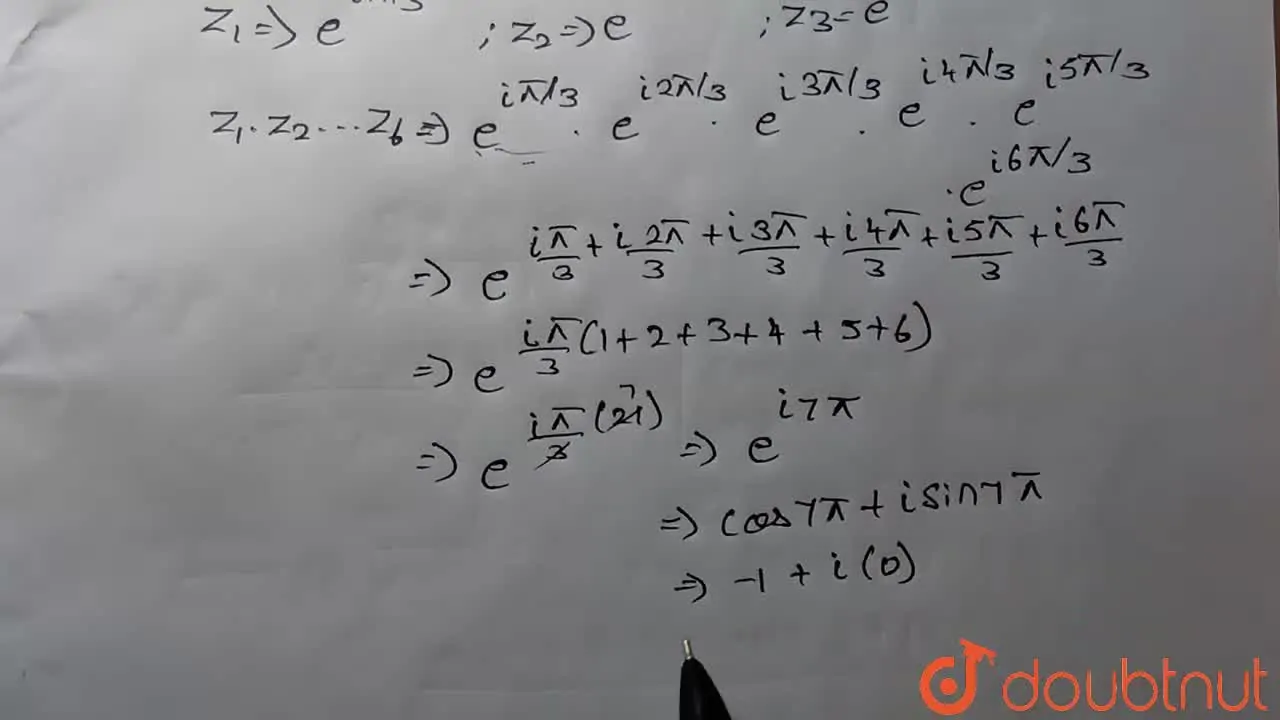 z₁ => e ; z₂ => e ; z₃ = e
z₁.z₂...z₆ => e^{iπ/3} . e^{i2π/3} . e^{i3π/3} . e^{i4π/3} . e^{i5π/3}
. e^{i6π/3}
=> e^{iπ/3 + i2π/3 + i3π/3 + i4π/3 + i5π/3 + i6π/3}
=> e^{iπ/3 (1+2+3+4+5+6)}
=> e^{iπ/3 (21) 7} => e^{i7π}
=> cos7π + i sin7π
=> -1 + i(0)
doubtnut